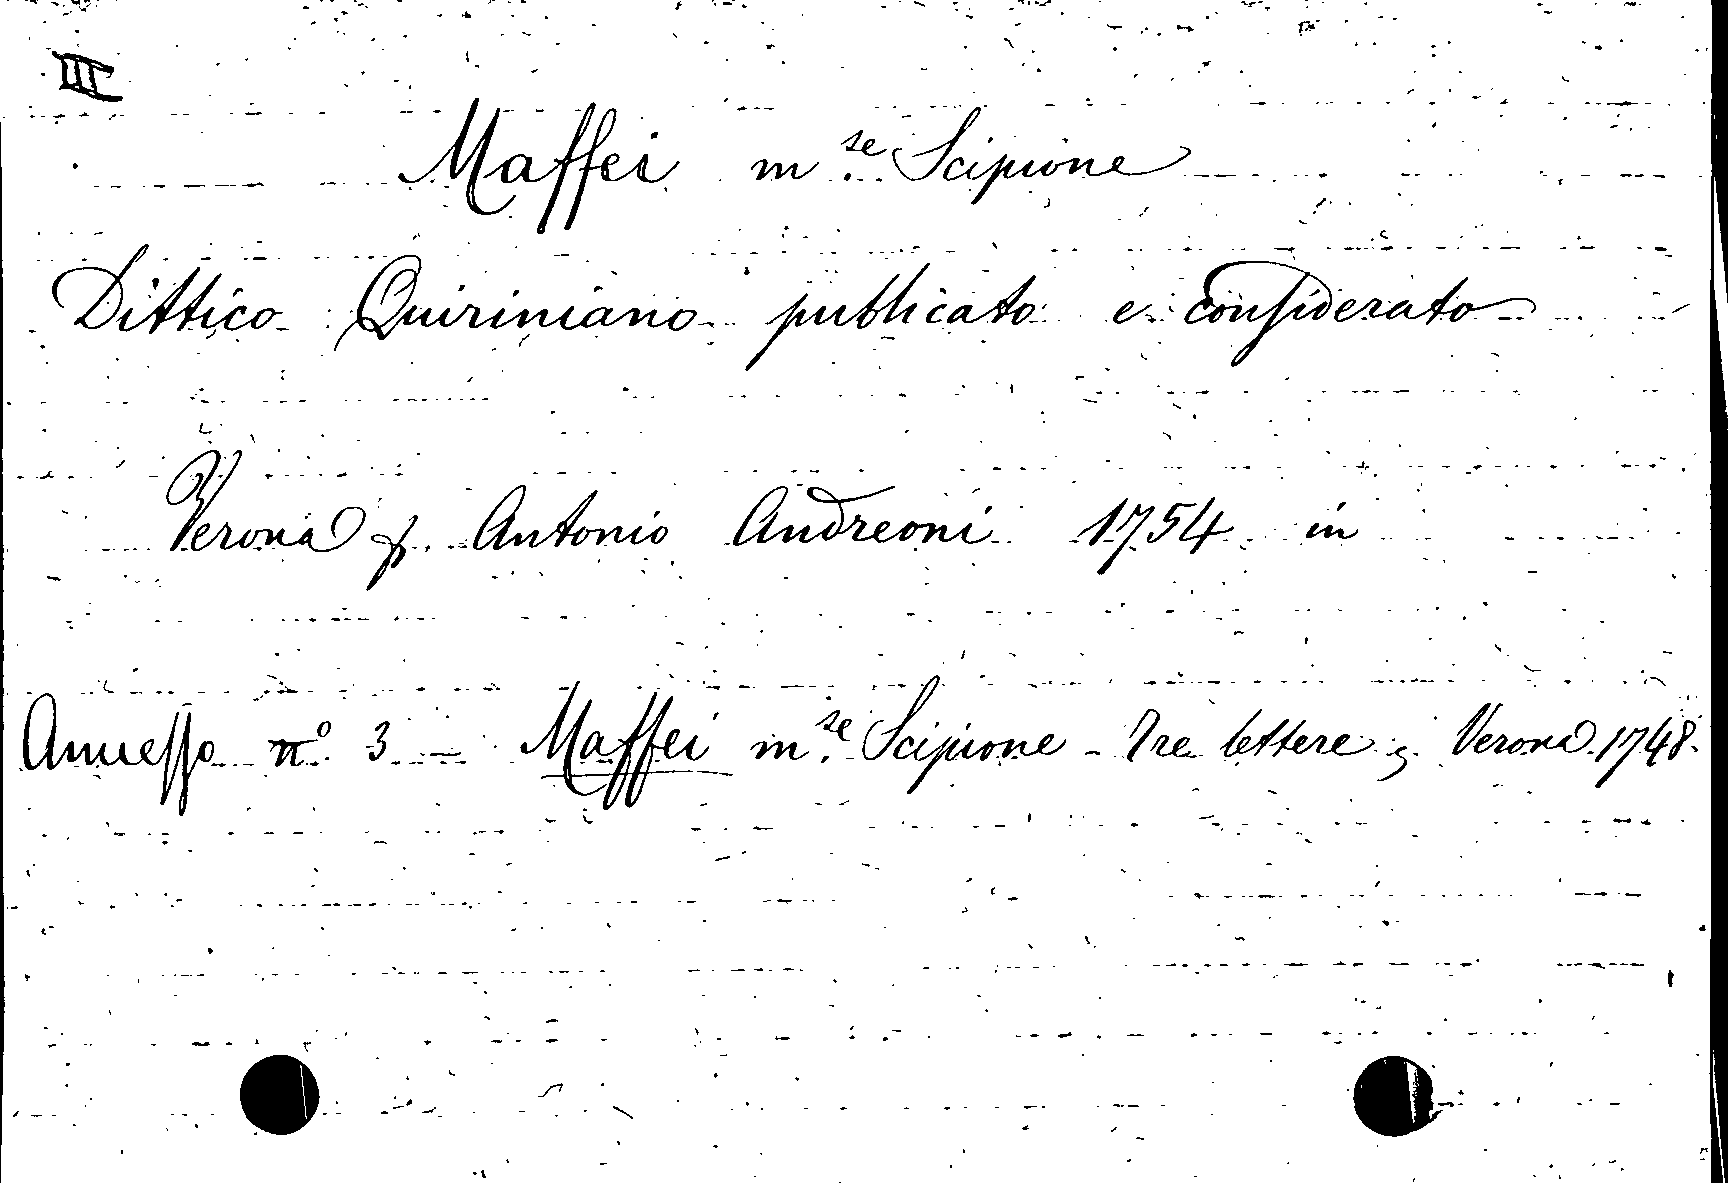 III
Maffei m.se Scipione
Dittico Quiriniano publicato e considerato
Verona p. Antonio Andreoni 1754 in
Annesso n.º 3 - Maffei m.se Scipione - Tre lettere Verona 1748.